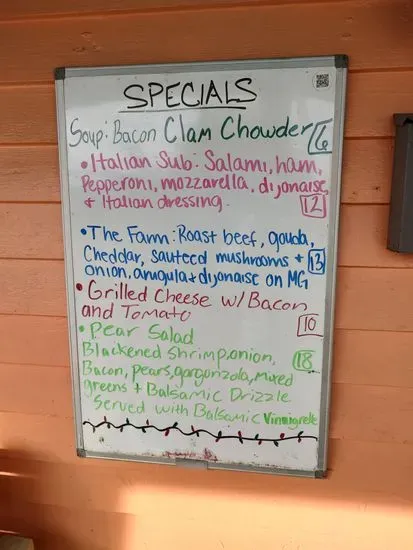 SPECIALS
Soup: Bacon Clam Chowder 6
• Italian Sub: Salami, ham,
Pepperoni, mozzarella, dijonaise
+ Italian dressing. 12
• The Farm: Roast beef, gouda,
Cheddar, sauteed mushrooms + 13
onion, arugula + dijonaise on MG
• Grilled Cheese w/ Bacon
and Tomato 10
• Pear Salad
Blackened Shrimp, onion, 18
Bacon, pears, gorgonzola, mixed
greens + Balsamic Drizzle
Served with Balsamic Vinnigrette